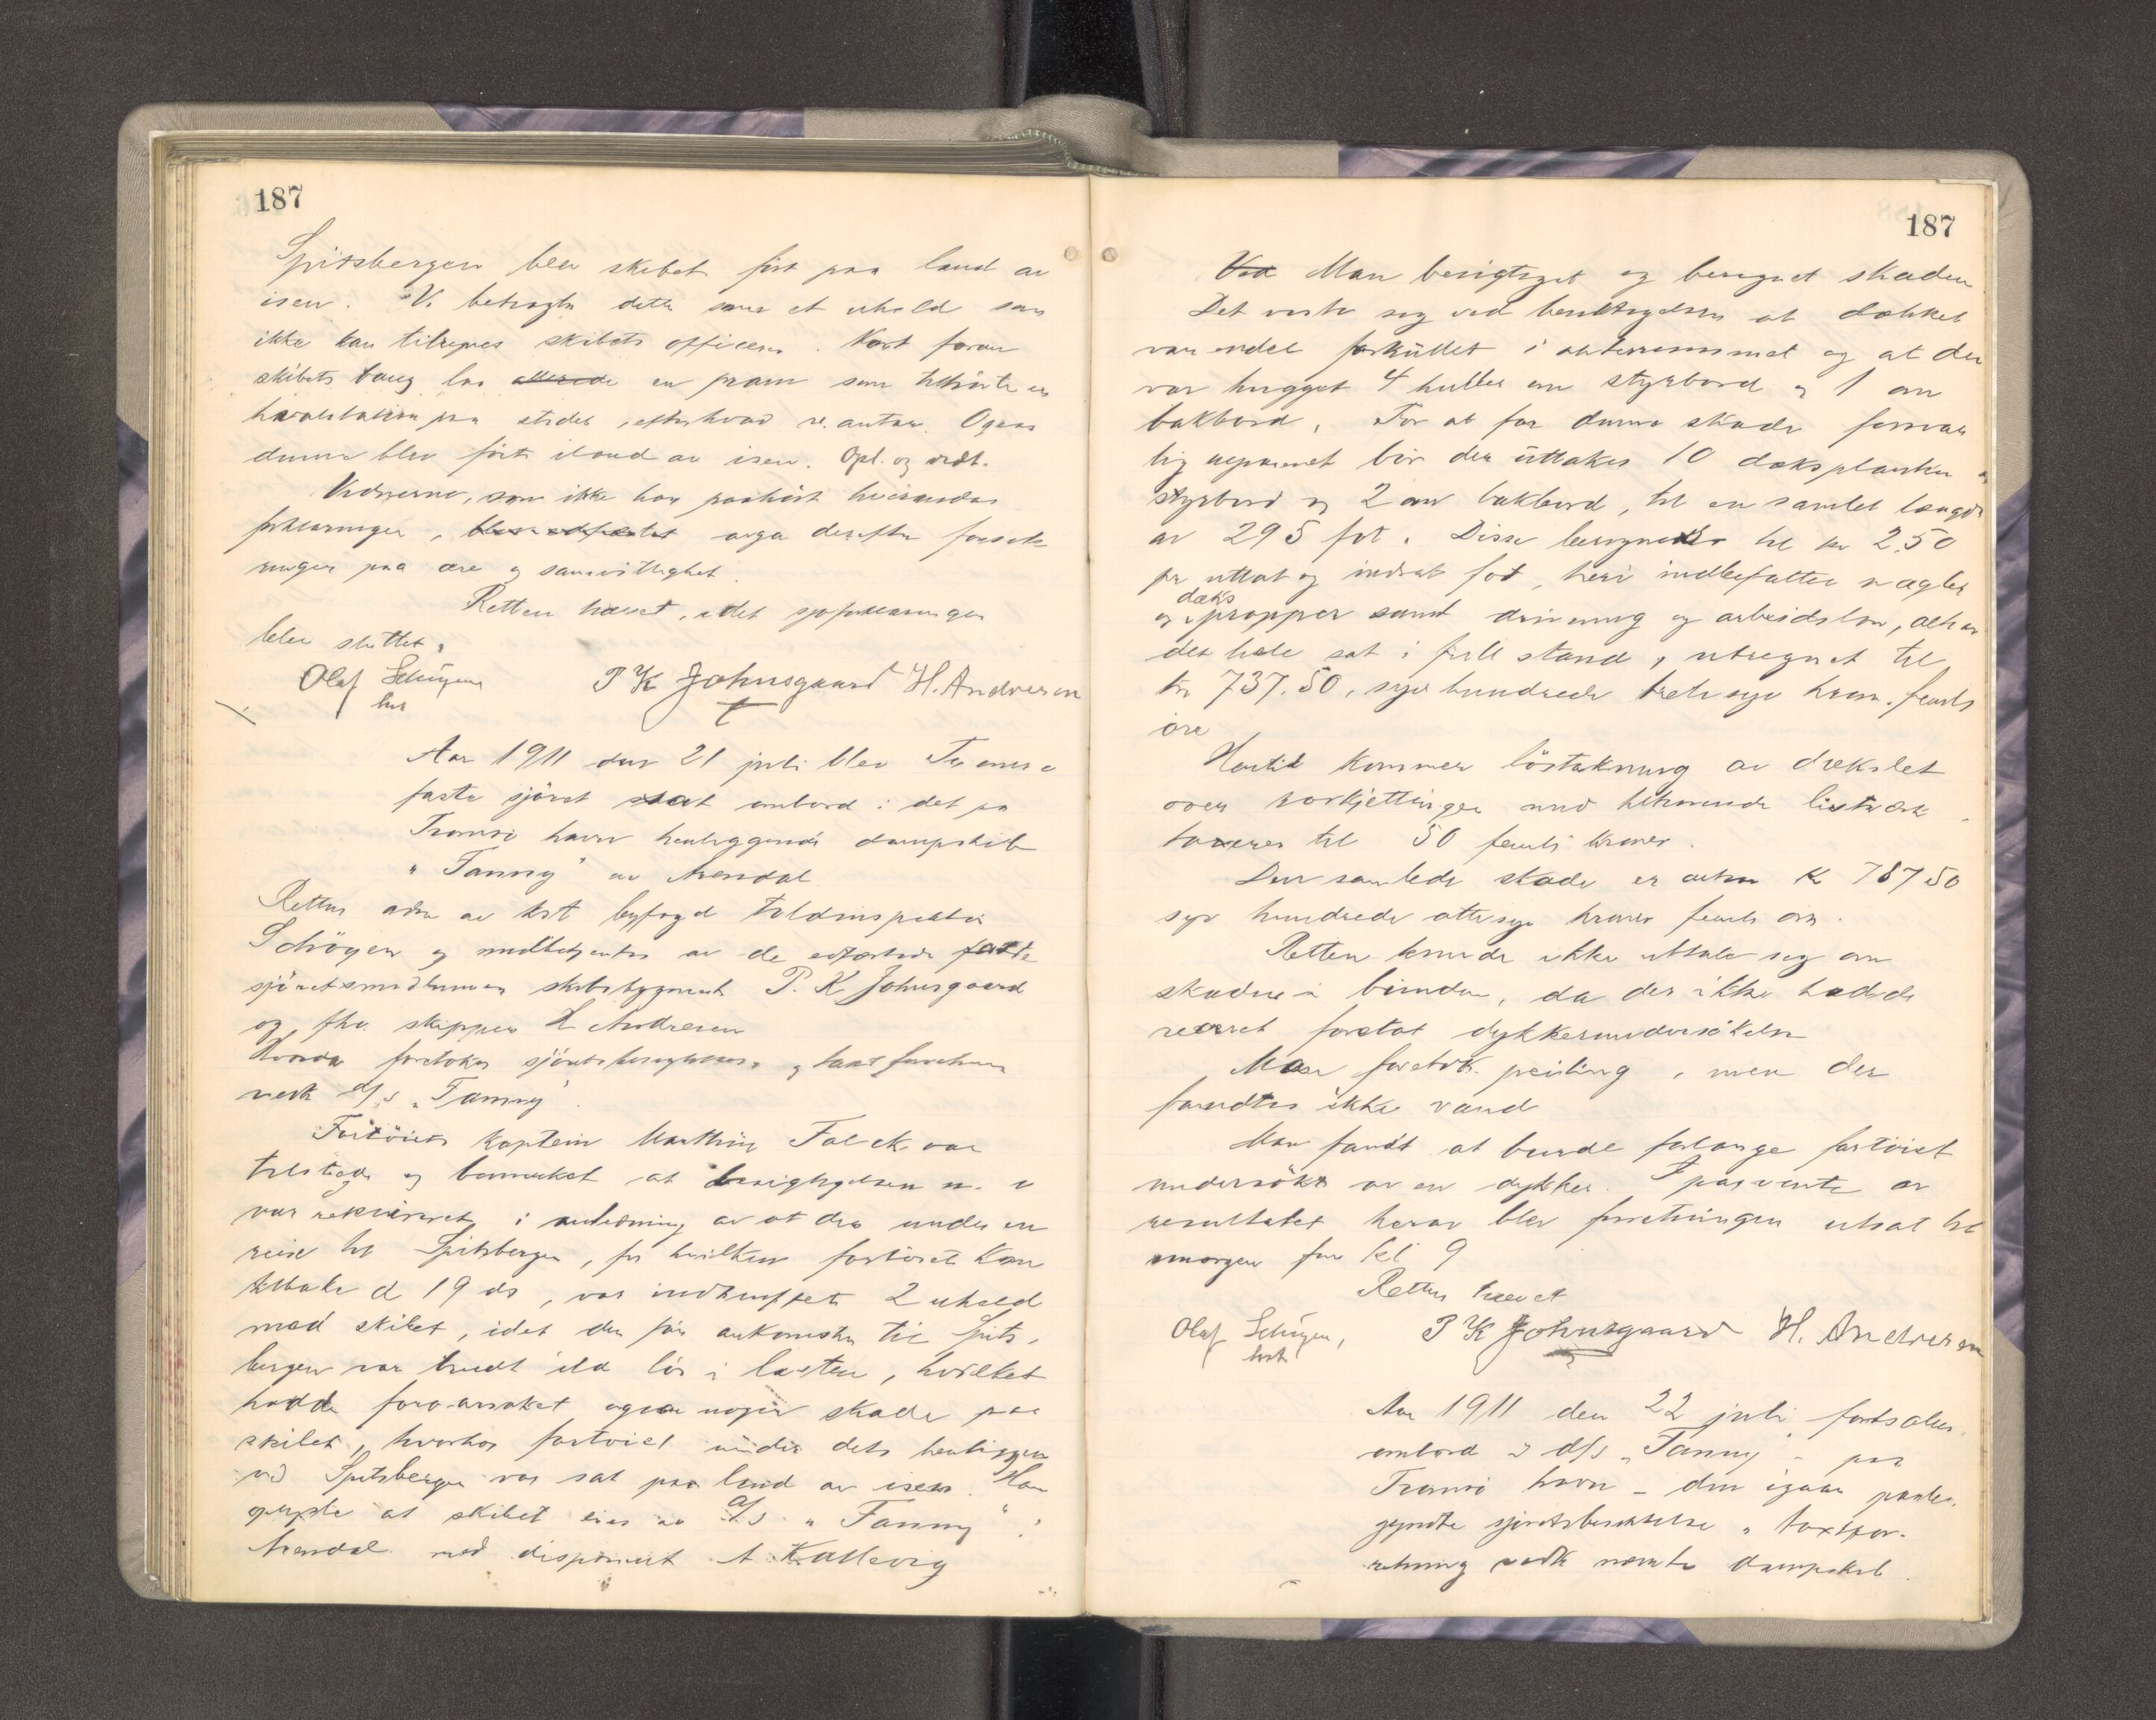 187
Spitsbergen blev skibet ført paa land av
isen. Vi betragter dette som et uheld som
ikke kan tilregnes skibets officerer. Kort foran
skibets baug laa allerede en pram som tilhørte en
hvalstation paa stedet, efter hvad v. antar. Ogsaa
denne blev ført iland av isen. Opl. og vedt.
Vidnerne, som ikke har paahørt hverandres
forklaringer, avga derefter forsik-
ringer paa ære og samvittighet.
Retten hævet, idet sjøforklaringen
blev sluttet.
Olaf Schøyen P K Johnsgaard H. Andresen
kst
Aar 1911 den 21 juli blev Tromsø
faste sjøret sat ombord i det paa
Tromsø havn henliggende dampskib
"Fanny" av Arendal
Retten adm av kst byfogd toldinspektør
Schøyen og medbetjentes av de edfæstede faste
sjøretsmedlemmer skibsbygmester P. K. Johnsgaard
og fhv. skipper H Andresen
Hvorda foretokes sjøretsbesigtelses- og taxtforretning
vedk d/s "Fanny".
Fartøiets kaptein Marthin Falck var
tilstede og bemerket at besigtigelsen m. v
var rekvireret i anledning av at der under en
reise til Spitsbergen, fra hvilken fartøiet kom
tilbake d 19 ds, var indtruffet 2 uheld
med skibet, idet der før ankomsten til Spits-
bergen var brudt ild løs i lasten, hvilket
hadde foraarsaket ogsaa nogen skade paa
skibet, hvorhos fartøiet under dets henliggen
ved Spitsbergen var sat paa land av isen. Han
oplyste at skibet eies av A/S "Fanny" i
Arendal med disponent A Kallevig
187
Ved Man besigtiget og beregnet skaden
Det viste sig ved besiktigelsen at dækket
var endel forkullet i akterrummet og at der
var hugget 4 huller om styrbord og 1 om
bakbord. For at faa denne skade forsvar
lig reparert bør der uttakes 10 dæksplanker om
styrbord og 2 om bakbord, til en samlet længde
av 295 fot. Disse beregnes til kr 2.50
pr uttat og indsat fot, heri indbefattet nagler
og dæks propper samt drivning og arbeidsløn, alt saa
det hele sat i full stand, utregnet til
kr 737.50, syv hundrede treti syv kron. femti
øre
Hertil kommer løstakning av dækslet
over rorkjettingen med tilhørende listverk
taxeres til 50 femti kroner.
Den samlede skade er altsaa kr 787 50
syv hundrede ottisyv kroner femti øre.
Retten kunde ikke uttale sig om
skaden i bunden, da der ikke hadde
været foretat dykkerundersøkelse
Man foretok peiling, men der
fandtes ikke vand
Man fandt at burde forlange fartøiet
undersøkt av en dykker. I paavente av
resultatet herav blev forretningen utsat til
imorgen fm kl 9
Retten hævet
Olaf Schøyen, P K Johnsgaard H. Andresen
kst
Aar 1911 den 22 juli fortsattes
ombord i d/s "Fanny" paa
Tromsø havn – den igaar paabe-
gyndte sjøretsbesiktelse og taxtfor-
retning vedk nævnte dampskib.